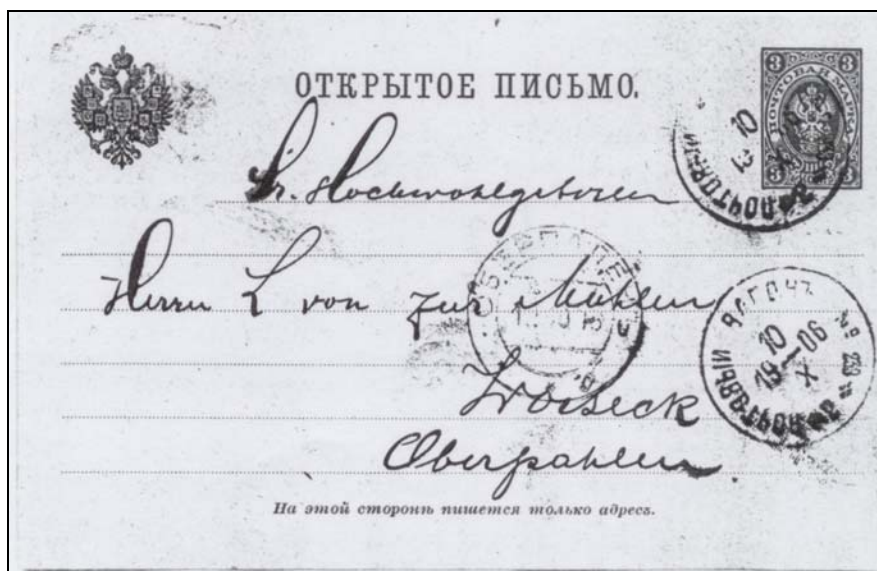 ОТКРЫТОЕ ПИСЬМО.
3 3
ПОЧТОВАЯ МАРКА
3 3
10
X
Sr. Hochwohlgeboren
Herrn L von zur Mühlen
Woiseck
Oberpahlen
ПОЧТОВЫЙ ВАГОНЪ № 223
10
19 — 06
X
На этой сторонѣ пишется только адресъ.